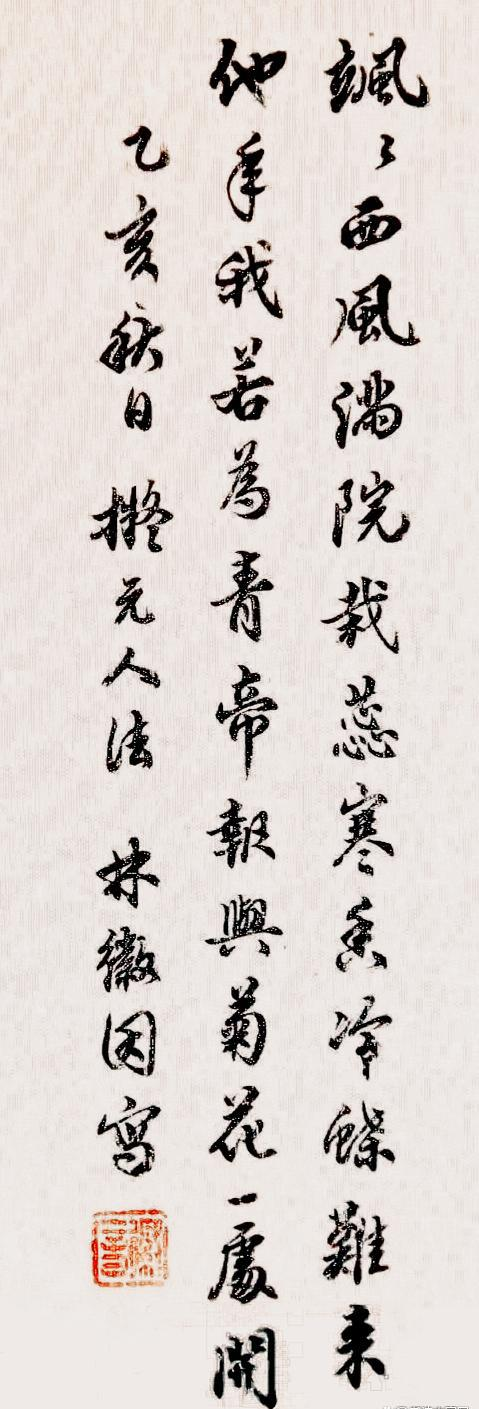 颯〻西風滿院栽蕊寒香冷蝶難来
他年我若為青帝報與菊花一處開
乙亥秋日 擬元人法 林徽因寫